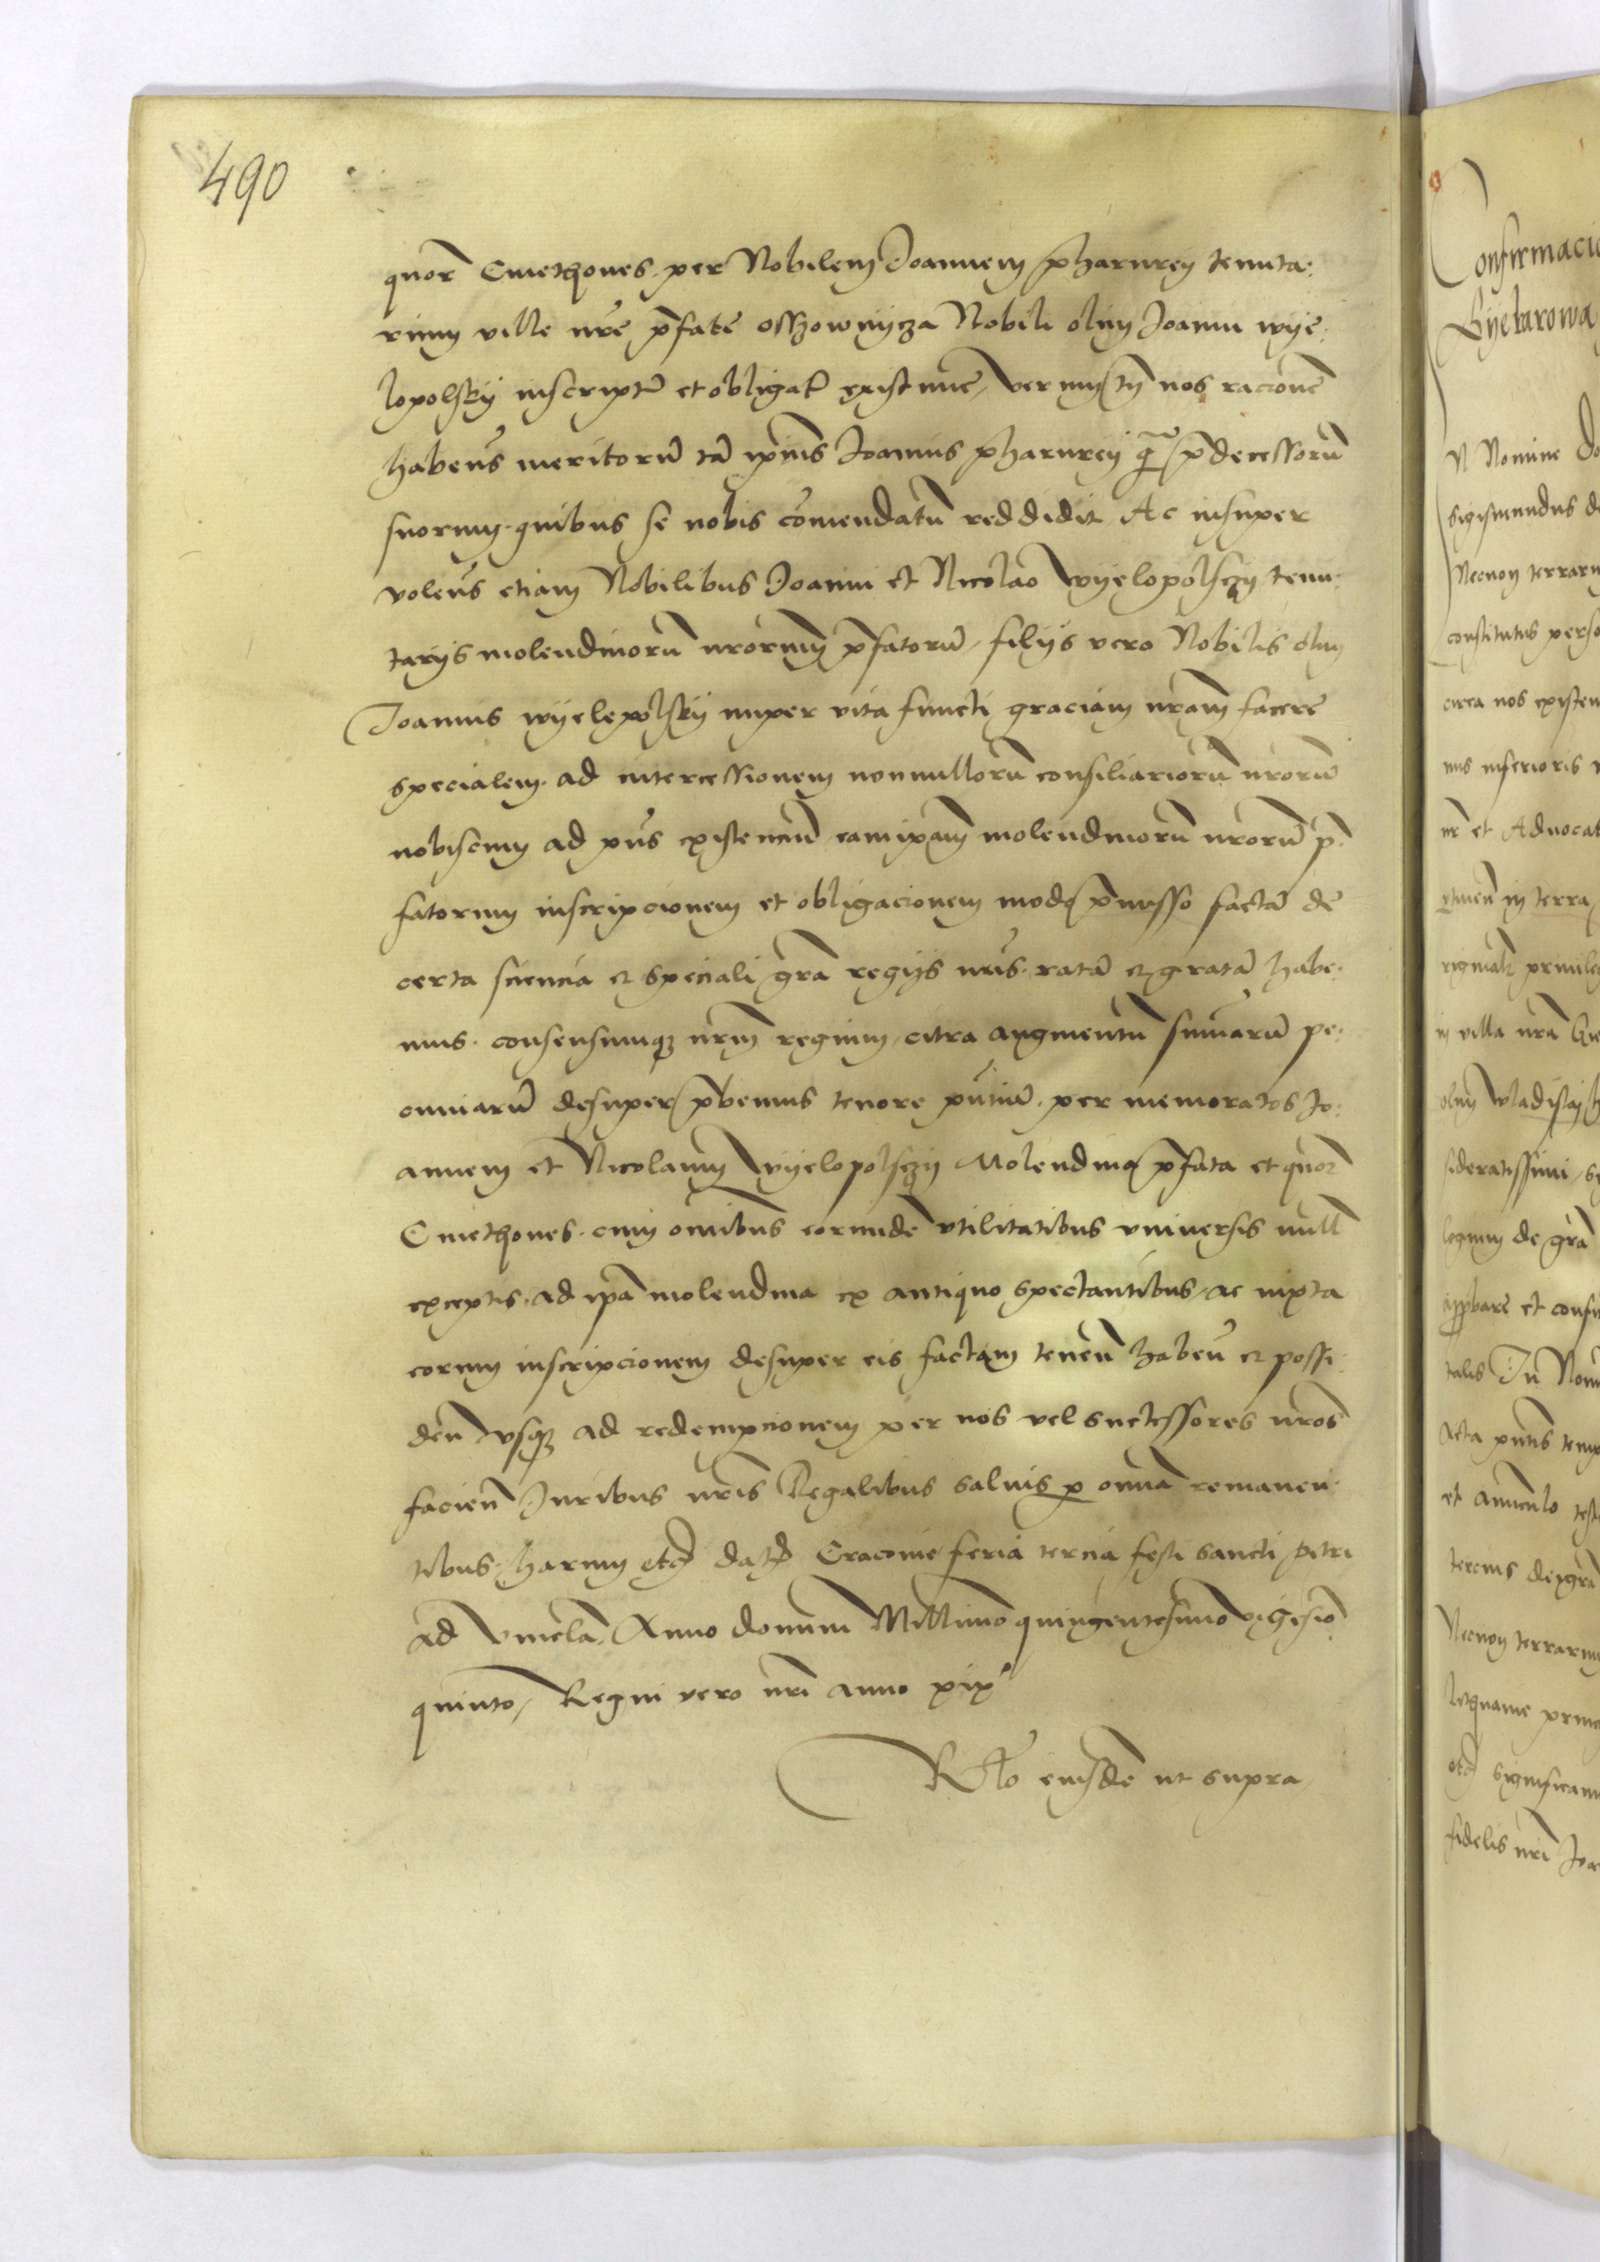 490
quor͂ Cmethones per Nobilem Joannem pharurey tenuta:
rium ville nr̄e p̄fate osszownycza Nobili olim Joanni wye:
lopolsky inscriptȩ et obligatȩ existunt, verum tn̄ nos racionē
habentēs meritorū tā ip̄ius Joannis pharurey q̄ p̄decessorū
suorum quibus se nobis cōmendatū reddidit Ac insuper
volentēs etiam Nobilibus Joanni et Nicolao wyelopolsczy tenu:
tarijs molendinorū nr̄orum p̄fatorū, filijs vero Nobilis olim
Joannis wyelepolsky nuper vita functi graciam nr̄am facere
specialem ad intercessionem nonnullorū consiliariorū nr̄orū
nobiscum ad p̄ns existenciū eam ip̄am molendinorū nr̄orū p̄:
fatorum inscripcionem et obligacionem modo p̄misso factā de
certa sciencia et speciali gr̄a regijs nr̄is ratā et gratā habe:
mus consensumq3 nr̄m regium citra augmentū summarū pe:
cuniarū desuper p̄bemus tenore p̄ntiū per memoratos Jo:
annem et Nicolaum wyelopolsczy Molendina p̄fata et quor͂
Cmethones cum om̄ibus eorundē vtilitatibus vniuersis null
exceptis ad ip̄a molendina ex antiquo spectantibus, ac iuxta
eorum inscripcionem desuper eis factam tenen̄ haben̄ et possi:
den̄ vsq3 ad redempcionem per nos vel successores nr̄os
facien̄ Juribus nr̄is Regalibus saluis p om̄ia remanen:
tibus harum etc dat Cracouie feria tercia festi sancti petri
ad vincla Anno domini Millimo quingentesimo vigesimo
quinto, Regni vero nr̄i anno xix
Rlo eiusdē ut supra
Confirmacio
N Nomine Do
Sigismundus de
Necnon terrarum
constitutus perso
circa nos existen
nus inferioris
nr̄ et Aduocat
in terra
in villa nr̄a
olim wladislaj
sideratissimi,
legium de gr̄a
app̄bare et confir
talis In Nom
Acta p̄ntis temp
et
tercius dei gr̄a
Necnon terrarum
etc significam
fidelis nr̄i Joan